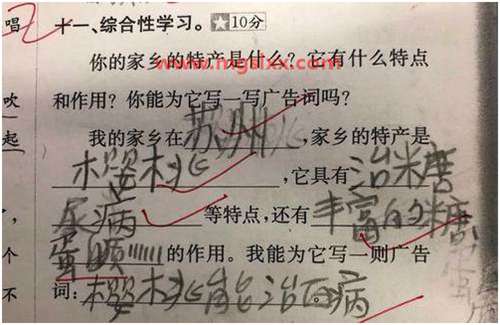 唱 十一、综合性学习。★10分
你的家乡的特产是什么？它有什么特点
www.mgslxx.com
吹 和作用？你能为它写一写广告词吗？
起 我的家乡在苏州，家乡的特产是
樱桃，它具有治米唐
， 尿病等特点，还有丰富的米唐
个 蛋 的作用。我能为它写一则广告
蛋
不 词：樱桃能治百病